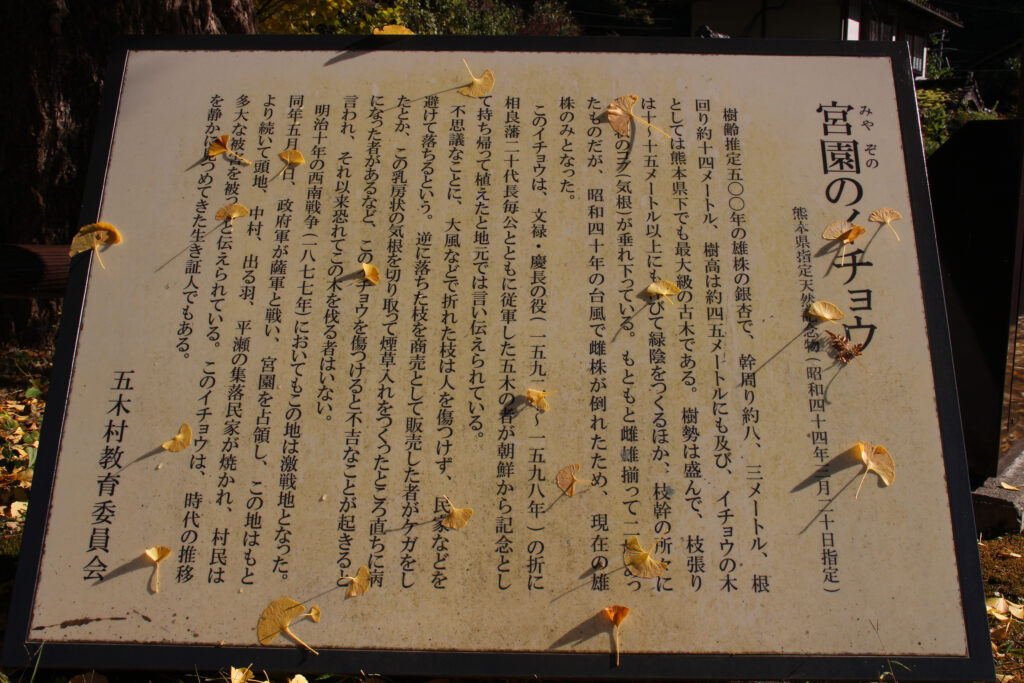 みや ぞの
宮園のイチョウ
熊本県指定天然記念物(昭和四十四年三月二十日指定)
樹齢推定五〇〇年の雄株の銀杏で、幹周り約八、三メートル、根
回り約十四メートル、樹高は約四五メートルにも及び、イチョウの木
としては熊本県下でも最大級の古木である。樹勢は盛んで、枝張り
は十～十五メートル以上にも びて緑陰をつくるほか、枝幹の所々に
のコブ(気根)が垂れ下っている。もともと雌雄揃って二 あっ
たものだが、昭和四十年の台風で雌株が倒れたため、現在の雄
株のみとなった。
このイチョウは、文禄・慶長の役(一五九 ～一五九八年)の折に
相良藩二十代長毎公とともに従軍した五木の者が朝鮮から記念とし
て持ち帰って植えたと地元では言い伝えられている。
不思議なことに、大風などで折れた枝は人を傷つけず、民家などを
避けて落ちるという。逆に落ちた枝を商売として販売した者がケガをし
たとか、この乳房状の気根を切り取って煙草入れをつくったところ直ちに病
になった者があるなど、このイチョウを傷つけると不吉なことが起きると
言われ、それ以来恐れてこの木を伐る者はいない。
明治十年の西南戦争(一八七七年)においてもこの地は激戦地となった。
同年五月 日、政府軍が薩軍と戦い、宮園を占領し、この地はもと
より続いて頭地、中村、出る羽、平瀬の集落民家が焼かれ、村民は
多大な被害を被ったと伝えられている。このイチョウは、時代の推移
を静かにみつめてきた生き証人でもある。
五木村教育委員会